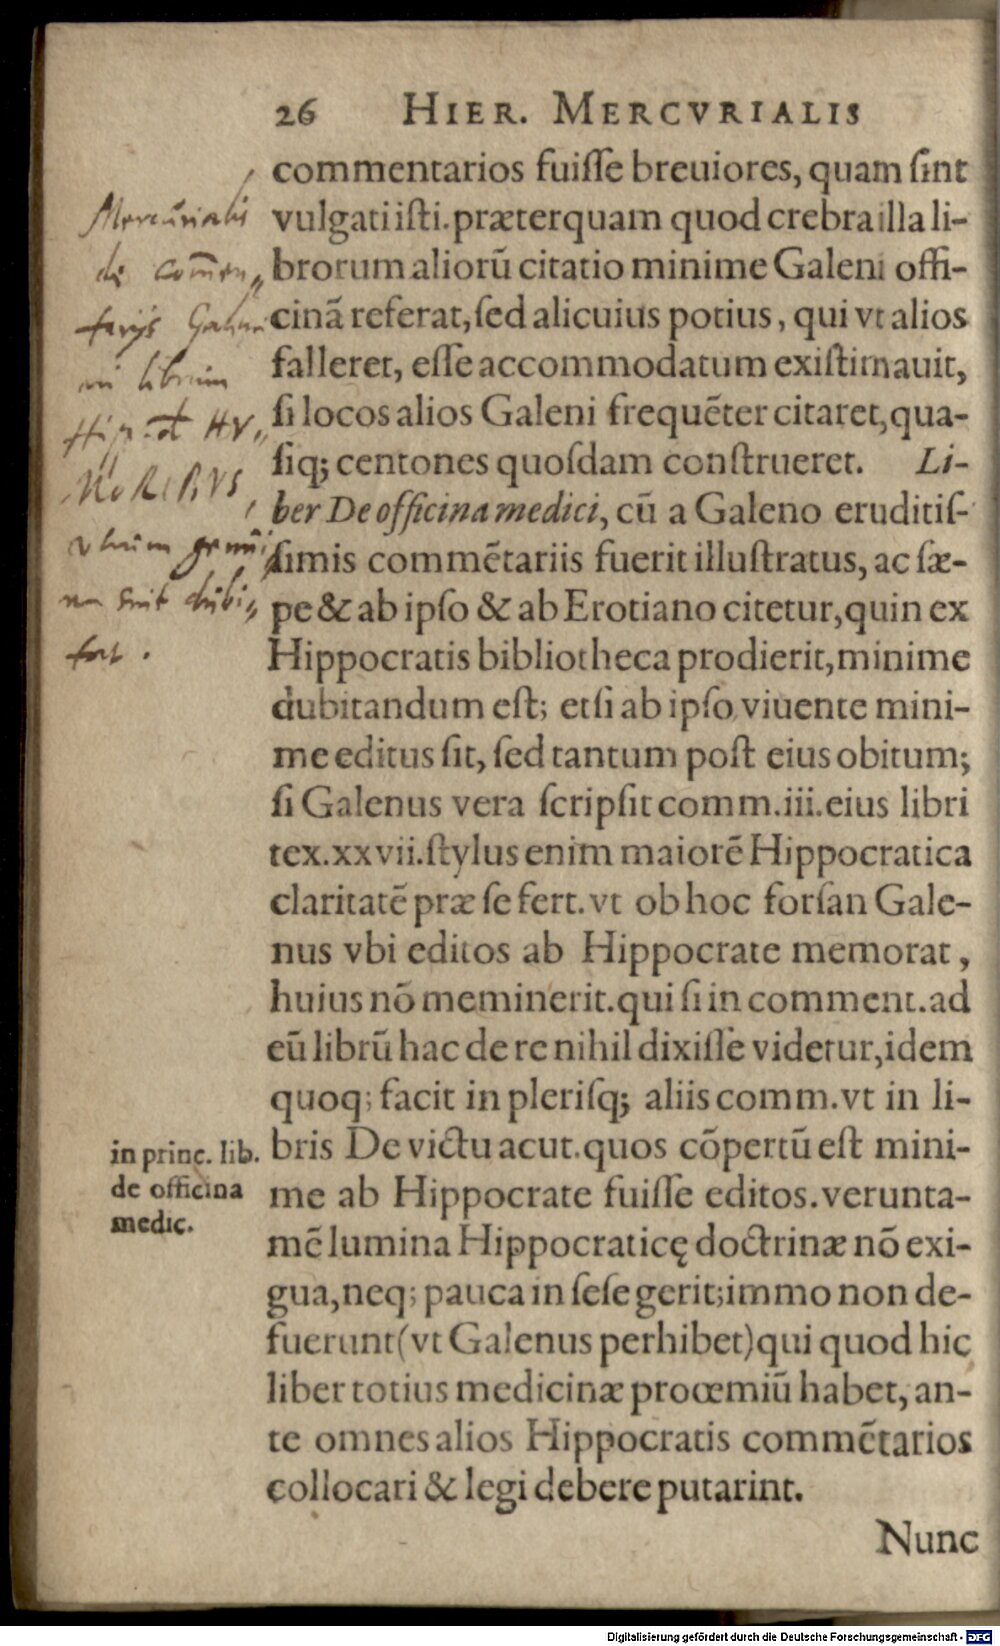 26 HIER. MERCVRIALIS
commentarios fuiſſe breuiores, quam ſint
vulgati iſti. præterquam quod crebra illa li-
brorum aliorū citatio minime Galeni offi-
cinā referat, ſed alicuius potius, qui vt alios
falleret, eſſe accommodatum exiſtimauit,
ſi locos alios Galeni frequēter citaret, qua-
ſiq; centones quoſdam conſtrueret. Li-
ber De officina medici, cū a Galeno eruditiſ-
ſimis commētariis fuerit illuſtratus, ac ſæ-
pe & ab ipſo & ab Erotiano citetur, quin ex
Hippocratis bibliotheca prodierit, minime
dubitandum eſt; etſi ab ipſo viuente mini-
me editus ſit, ſed tantum poſt eius obitum;
ſi Galenus vera ſcripſit comm. iii. eius libri
tex. xxvii. ſtylus enim maiorē Hippocratica
claritatē præ ſe fert. vt ob hoc forſan Gale-
nus vbi editos ab Hippocrate memorat,
huius nō meminerit. qui ſi in comment. ad
eū librū hac de re nihil dixiſſe videtur, idem
quoq; facit in pleriſq; aliis comm. vt in li-
bris De victu acut. quos cōpertū eſt mini-
me ab Hippocrate fuiſſe editos. verunta-
mē lumina Hippocraticę doctrinæ nō exi-
gua, neq; pauca in ſeſe gerit; immo non de-
fuerunt (vt Galenus perhibet) qui quod hic
liber totius medicinæ proœmiū habet, an-
te omnes alios Hippocratis commētarios
collocari & legi debere putarint.
Nunc
Mercurialis
de com̄en„
tarijs
in librum
Hip. HV„
MORIBVS,
utrum genui
na sint dubi„
tat.
in princ. lib.
de officina
medic.
Digitalisierung gefördert durch die Deutsche Forschungsgemeinschaft - DFG